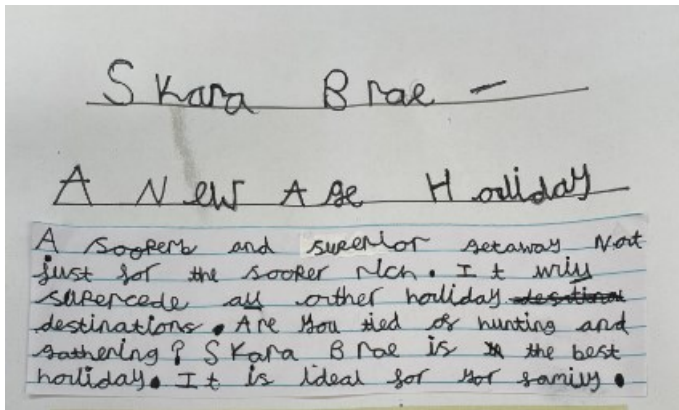 Skara Brae –
A New Age Holiday
A sooperb and superior getaway Not
just for the sooper rich. It will
supercede all other holiday
destinations. Are you tied of hunting and
gathering? Skara Brae is the best
holiday. It is ideal for yor family.